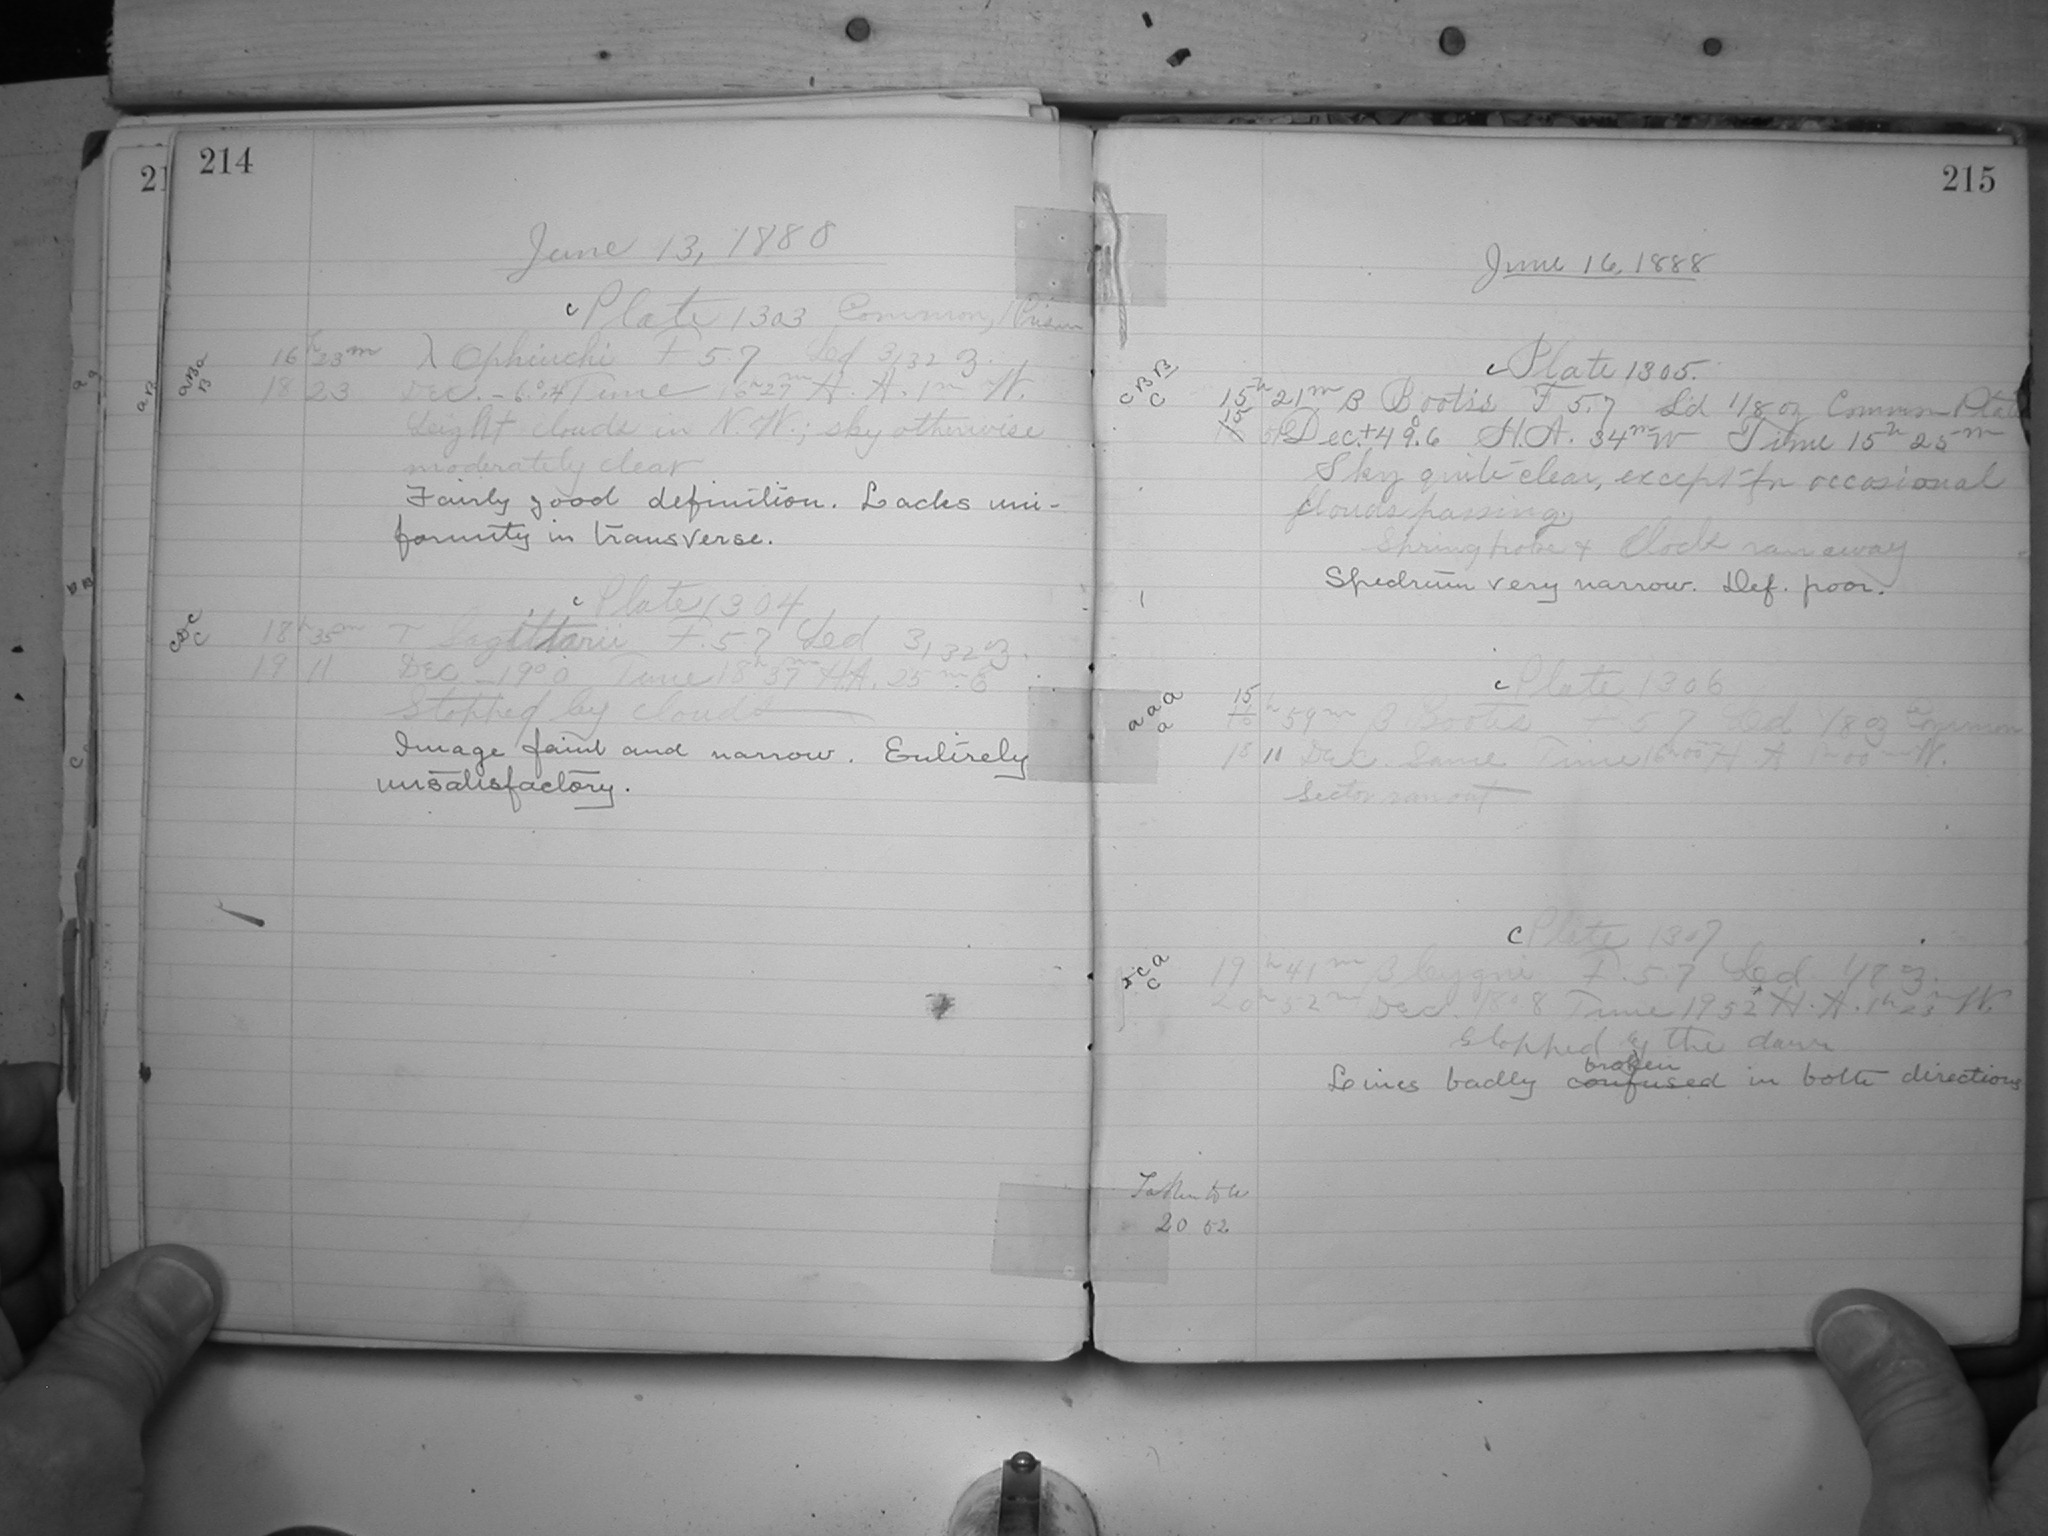 214
June 13, 1888
c Plate 1303 Common, Prism
16h 23m λ Ophiuchi F 5.7 Led 3/32 oz.
18 23 Dec. -6°.4 Time 16h 27m H. A. 1m W.
Leight clouds in N. W.; sky otherwise
moderately clear
Fairly good definition. Lacks uni-
formity in transverse.
c Plate 1304
18h 35m τ Sagittarii F. 5.7 Led 3/32 oz.
19 11 Dec -19°.0 Time 18h 37m H.A. 25m E
Stopped by clouds
Image faint and narrow. Entirely
unsatisfactory.
215
June 16, 1888
c Plate 1305.
15h 21m β Bootis F 5.7 Ld 1/8 oz Common Plate
15 Dec. +49°.6 H.A. 34m W Time 15h 25m
Sky quite clear, except for occasional
clouds passing
Spring broke & Clock ran away
Spectrum very narrow. Def. poor.
c Plate 1306
15h 59m β Bootis F 5.7 Led 1/8 oz Common
18 10 Dec. Same Time 16h 00m H A 1h 00m W.
Sector ran out
c Plate 1307
19h 41m β Cygni F. 5.7 Led 1/8 oz.
20h 52m Dec. Time 19 52 H. A. 1h 23m W.
Stopped by the dawn
broken
Lines badly confused in both directions
20 52